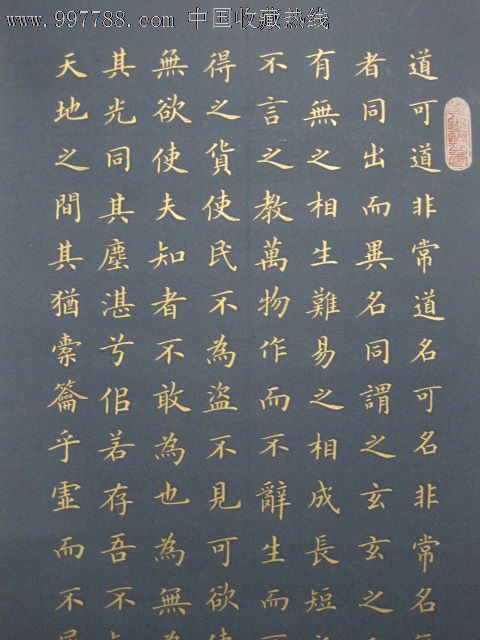 www.997788.com 中国收藏热线
道可道非常道名可名非常名
者同出而異名同謂之玄玄之
有無之相生難易之相成長短
不言之教萬物作而不辭生而
得之貨使民不為盜不見可欲使
無欲使夫知者不敢為也為無
其光同其塵湛兮佀若存吾不
天地之間其猶橐籥乎虛而不